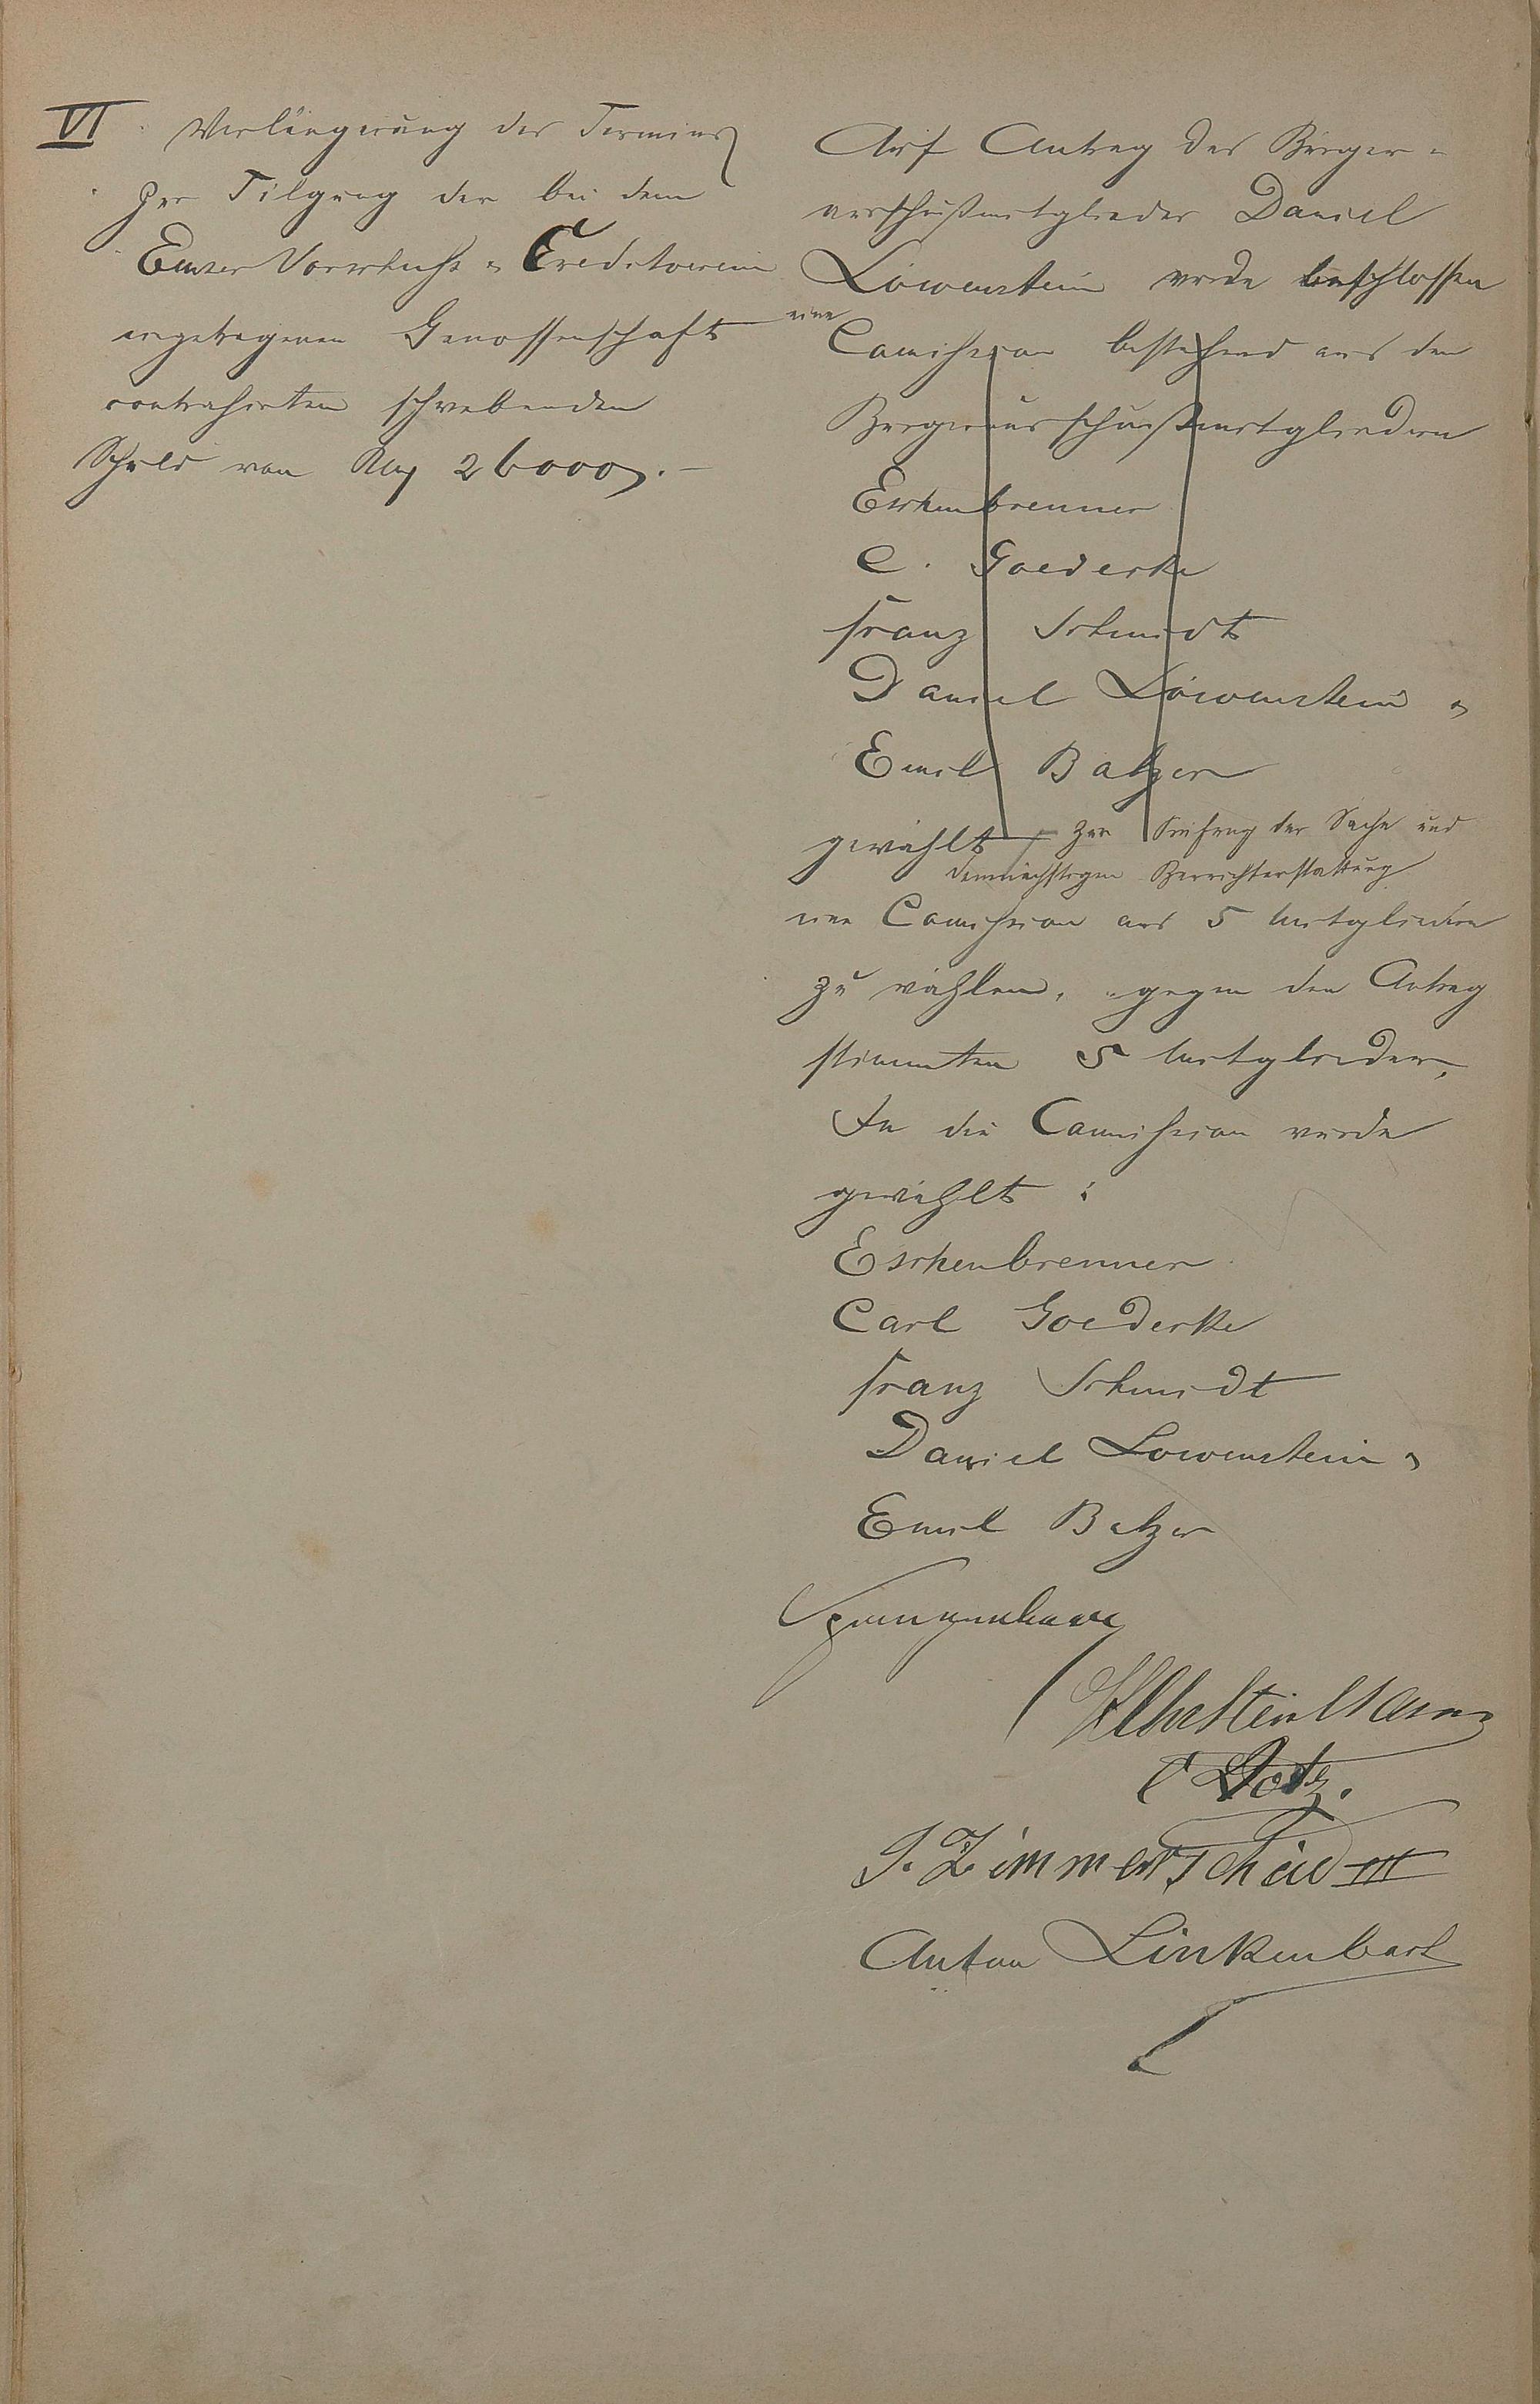 VI. Verlängerung des Termins
zur Tilgung der bei dem
Emser Vorschuß- & Creditverein
eingetragenen Genossenschaft
contrahirten schwebenden
Schuld von 26000.—
Auf Antrag des Bürger-
ausschußmitgliedes Daniel
Löwenstein wurde beschlossen
eine
Comission bestehend aus den
Bürgerausschußmitgliedern
Eschenbrenner
C. Goedecke
Franz Schmidt
Daniel Löwenstein &
Emil Balzer
gewählt zur Prüfung der Sache und
demnächstigen Berichterstattung
eine Comission aus 5 Mitgliedern
zu wählen, gegen den Antrag
stimmten 5 Mitglieder.
In die Comission wurde
gewählt:
Eschenbrenner
Carl Goedecke
Franz Schmidt
Daniel Löwenstein &
Emil Balzer
Spangenberg
C Gotz.
J. Zimmerscheid III
Anton Linkenbach